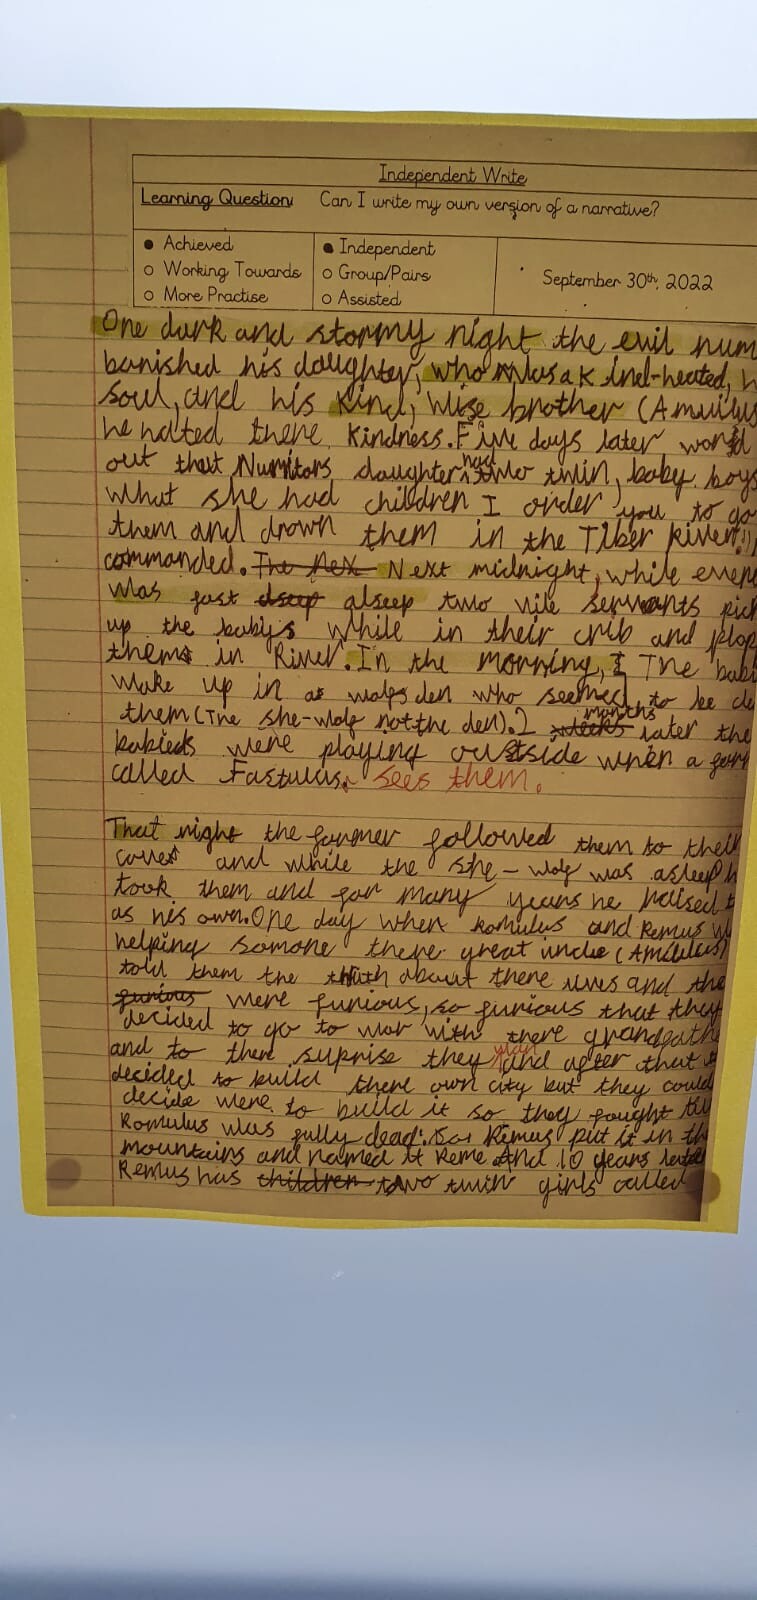 Independent Write
Learning Question Can I write my own version of a narrative?
Achieved
Working Towards
More Practise
Independent
Group/Pairs
Assisted
September 30th, 2022
One dark and stormy night the evil num
banished his daughter, who was a kind-heated, h
soul, and his kind, wise brother (Amulius
he hated there kindness. Five days later word
out that Numitors daughter had two twin, baby boys
what she had children I order you to go
them and drown them in the Tiber River!
commanded. The nex Next midnight, while even
was fast alseep two vile servants pic
up the babys while in their crib and plop
them in River. In the morning, The bab
wake up in a wolfs den who seemed to be
them (The she-wolf not the den). 2 weeks months later the
babieds were playing outside when a far
called Fastulus sees them.
That night the farmer followed them to their
and while the she-wolf was asleep h
took them and for many years he raised t
as his own. One day when Romulus and Remus w
helping somone there great uncle (Amulius)
told them the truth about there lives and the
furious were furious, so furious that they
decided to go to war with there grandfathe
and to there suprise they and after that
decided to build there own city but they could
decide were to build it so they fought
Romulus was fully dead. Remus put it in th
mountains and named it Reme And 10 years later
Remus has children two twin girls called